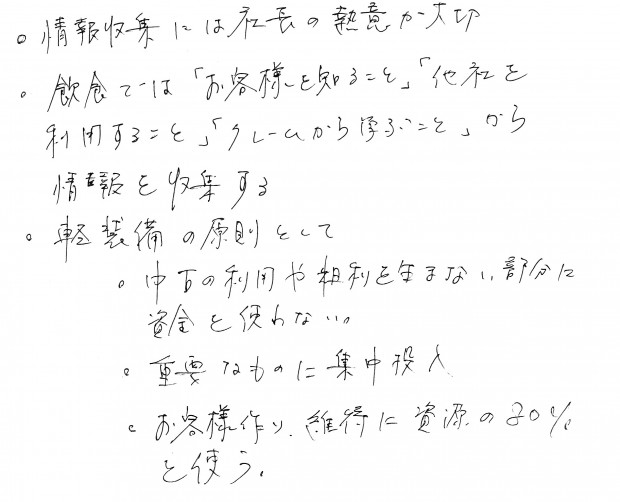 。情報収集には社長の熱意が大切
・飲食では「お客様を知ること」「他社を
利用すること」「クレームから学ぶこと」から
情報を収集する
。軽装備の原則として
。中古の利用や粗利を生まない部分に
資金を使わない。
・重要なものに集中投入
。お客様作り、維持に資源の80%
を使う。